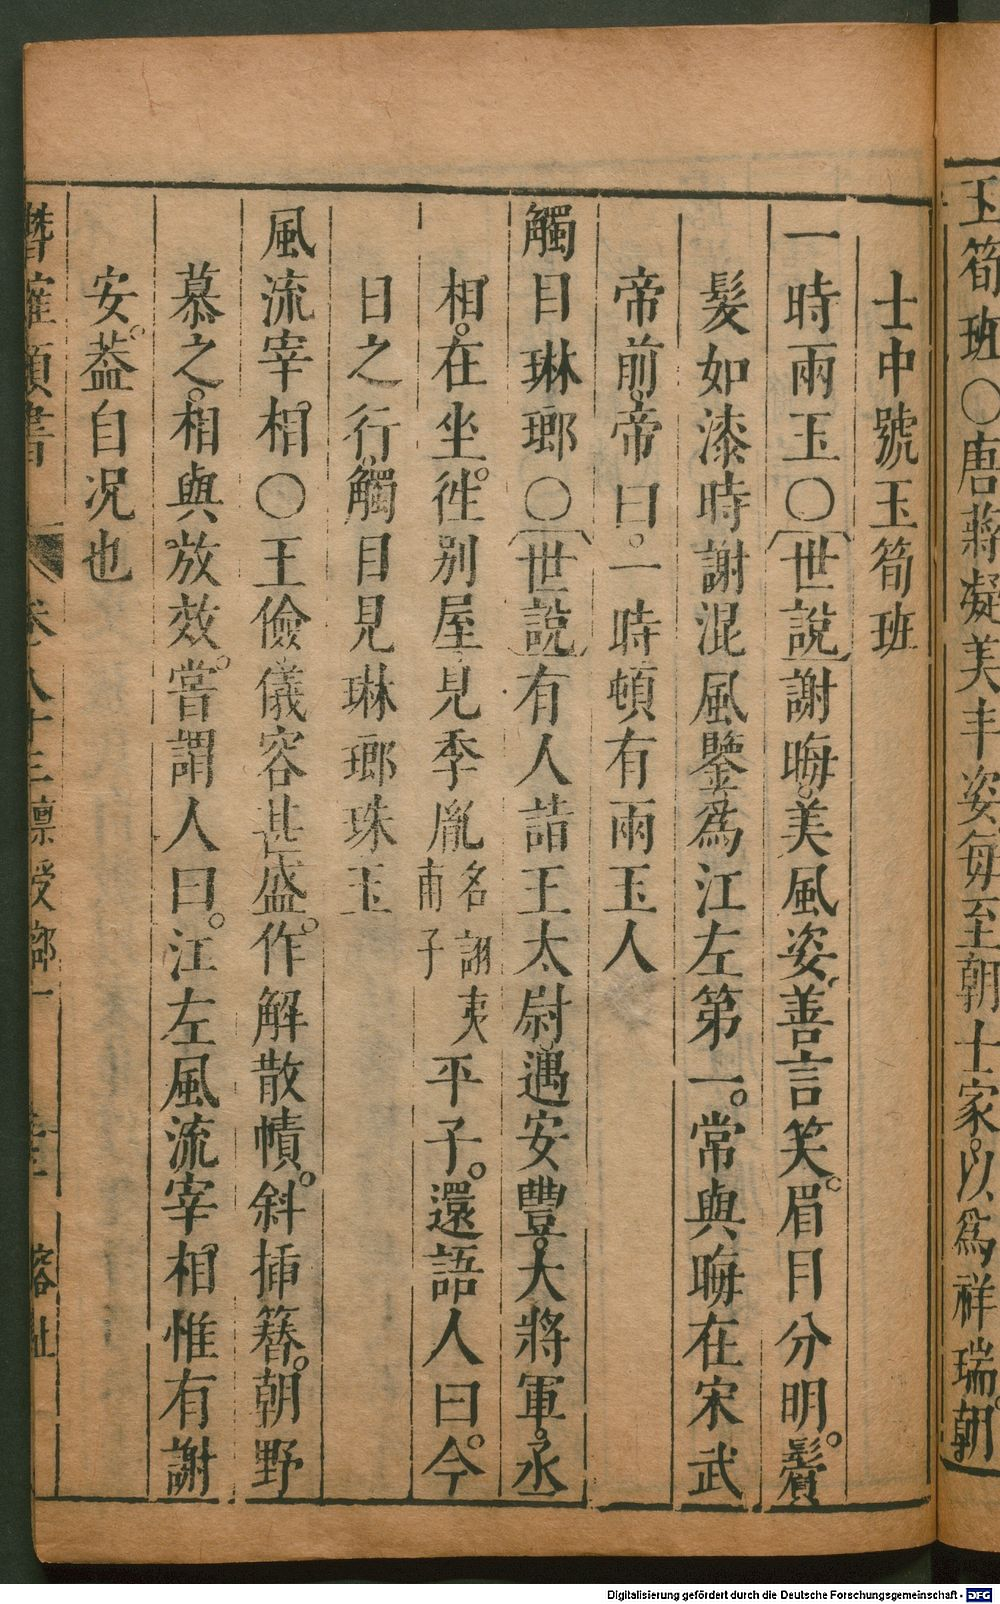 玉筍班〇唐蔣凝美丰姿每至朝士家以為祥瑞朝
士中號玉筍班
一時兩玉〇世說謝晦美風姿善言笑眉目分明鬢
髮如漆時謝混風鑒為江左第一常與晦在宋武
帝前帝曰一時頓有兩玉人
觸目琳瑯〇世說有人詣王太尉遇安豐大將軍丞
相在坐徃別屋見季胤名詡夷甫子平子還語人曰今
日之行觸目見琳瑯珠玉
風流宰相〇王儉儀容甚盛作解散幘斜揷簪朝野
慕之相與放效甞謂人曰江左風流宰相惟有謝
安葢自況也
潛確類書 卷八十三稟受部一
Digitalisierung gefördert durch die Deutsche Forschungsgemeinschaft - DFG